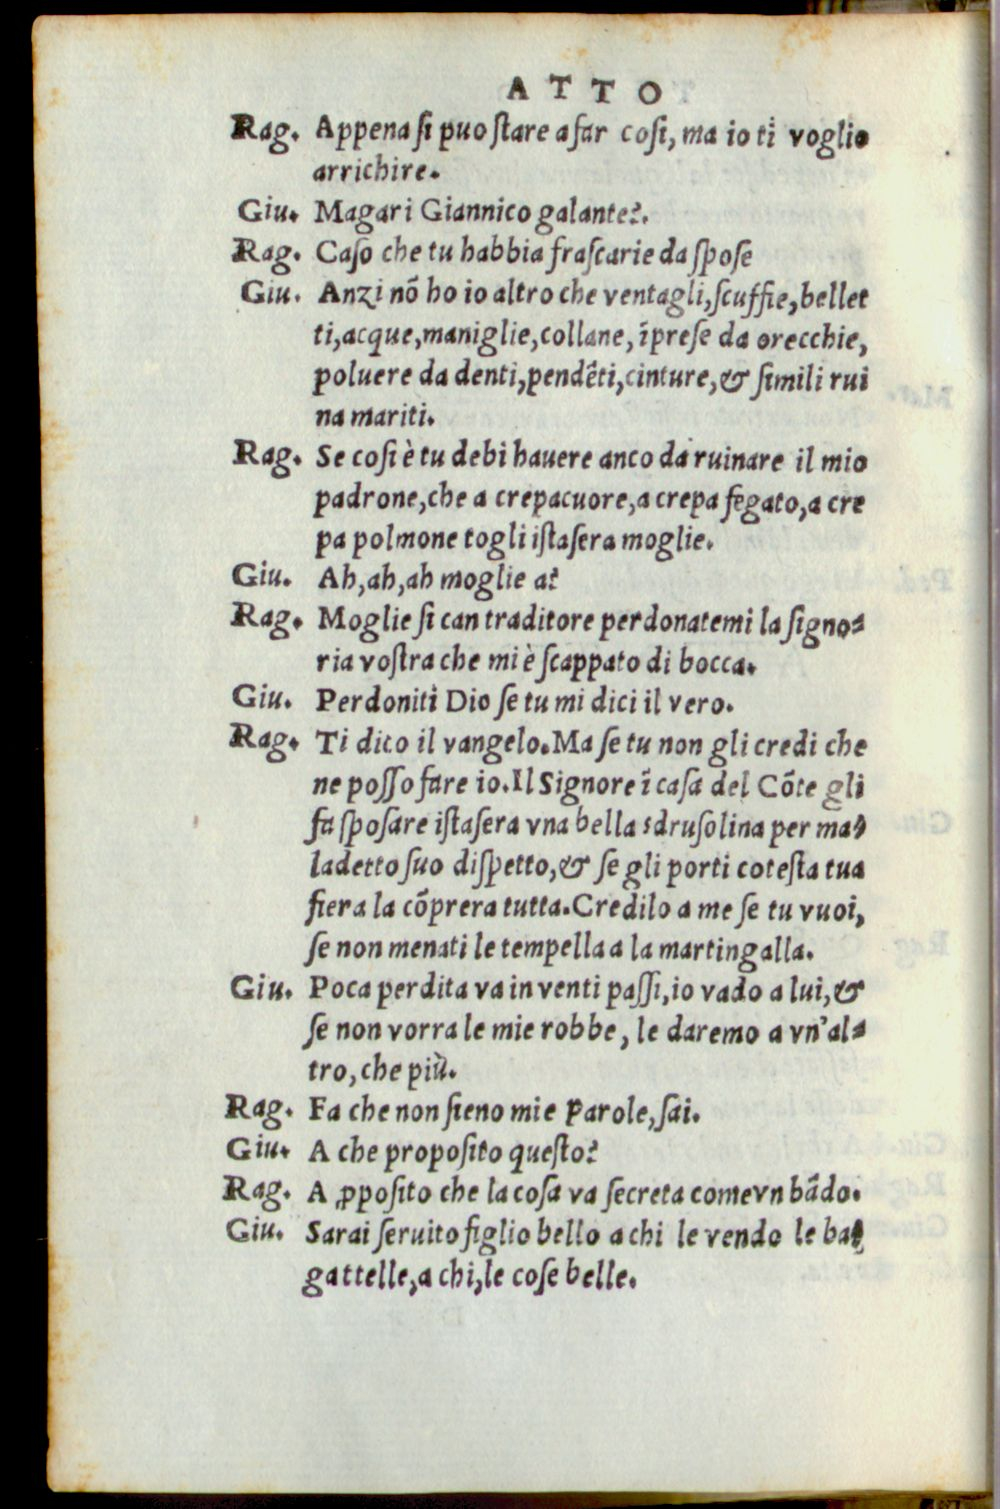 ATTO
Rag. Appena ſi puo ſtare a far coſi, ma io ti voglio
arrichire.
Giu. Magari Giannico galante?.
Rag. Caſo che tu habbia fraſcarie da ſpoſe
Giu. Anzi nõ ho io altro che ventagli, ſcuffie, bellet
ti, acque, maniglie, collane, ĩpreſe da orecchie,
poluere da denti, pendẽti, cinture, & ſimili rui
na mariti.
Rag. Se coſi è tu debi hauere anco da ruinare il mio
padrone, che a crepacuore, a crepa fegato, a cre
pa polmone togli iſtaſera moglie.
Giu. Ah, ah, ah moglie a?
Rag. Moglie ſi can traditore perdonatemi la ſigno-
ria voſtra che mi è ſcappato di bocca.
Giu. Perdoniti Dio ſe tu mi dici il vero.
Rag. Ti dico il vangelo. Ma ſe tu non gli credi che
ne poſſo fare io. Il Signore ĩ caſa del Cõte gli
fa ſpoſare iſtaſera vna bella sdruſolina per ma-
ladetto ſuo diſpetto, & ſe gli porti coteſta tua
fiera la cõprera tutta. Credilo a me ſe tu vuoi,
ſe non menati le tempella a la martingalla.
Giu. Poca perdita va in venti paſſi, io vado a lui, &
ſe non vorra le mie robbe, le daremo a vn'al-
tro, che più.
Rag. Fa che non ſieno mie parole, ſai.
Giu. A che propoſito queſto?
Rag. A ꝓpoſito che la coſa va ſecreta come vn bãdo.
Giu. Sarai ſeruito figlio bello a chi le vendo le ba-
gattelle, a chi, le coſe belle.